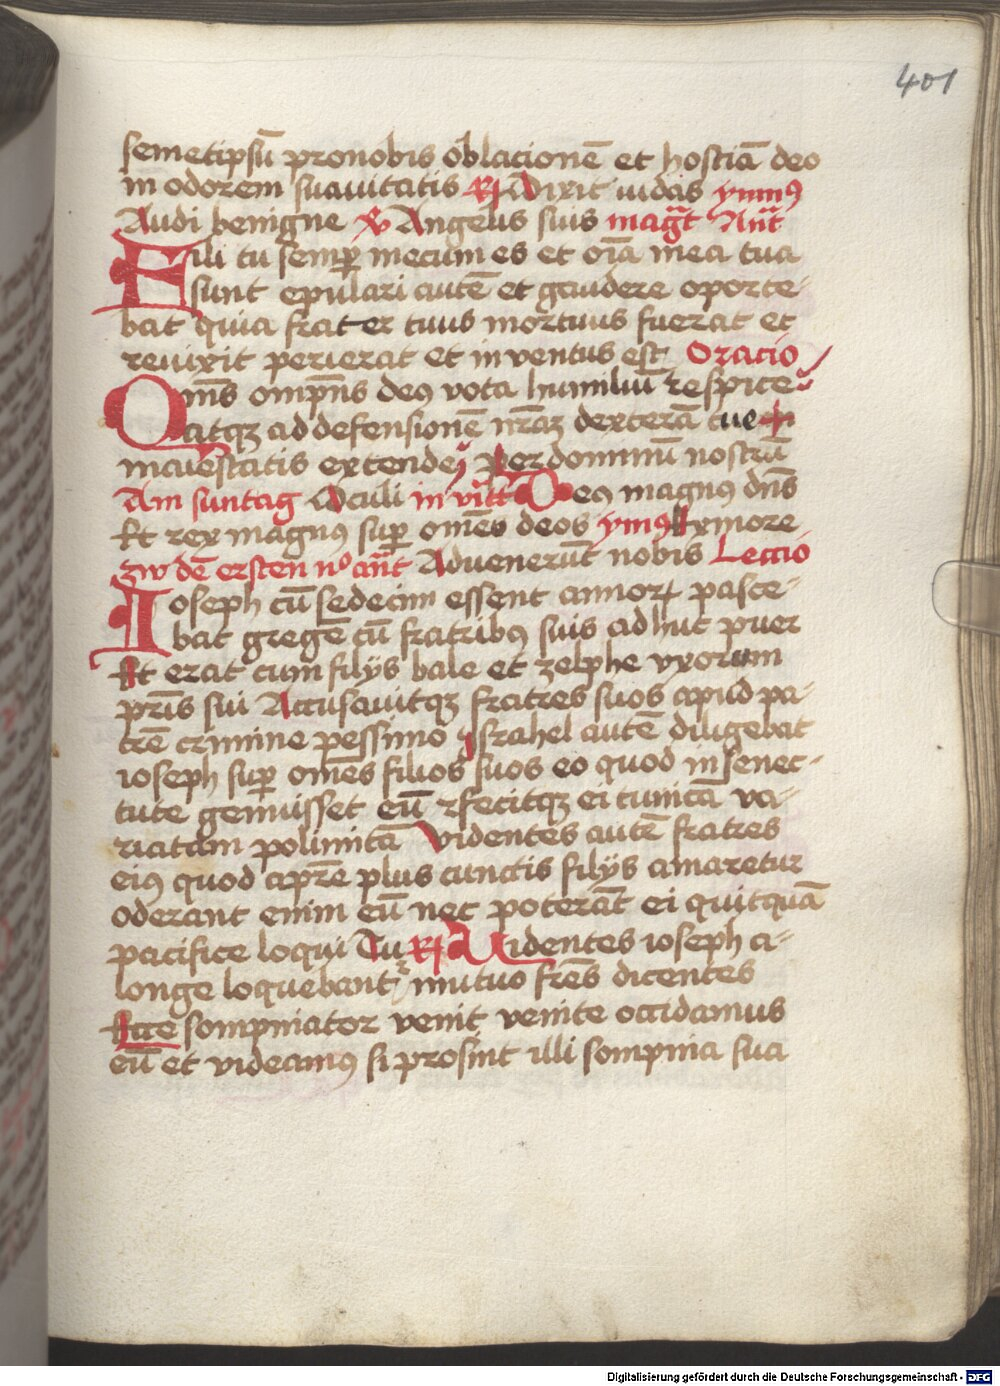 401
semetipsū pronobis oblacionē et hostiā deo
in odorem suavitatis R Dixit iudas ymn9
Audi benigne V Angelis suis magāt Ant
Fili tu semp mecum es et oīa mea tua
sunt epulari autē et gaudere oporte-
bat quia frater tuus mortuus fuerat et
revixit perierat et inventus est Oracio
Qms ompns deq vota humiliū respice
atqz ad defensionē nraz dexterā tue
maiestatis extende per dominum nostrū
Am suntag Oculi in vitt Deq magnus dns
Et rex magnus sup omēs deos ymq Exmore
zw dē ersten n° ant Advenerūt nobis Leccio
Ioseph cū sedecim essent annor pasce-
bat gregē cū fratribq suis adhuc puer
Et erat cum filijs bale et zelphe vxorum
pris sui Accusavitqz fratres suos apud pa-
trē crimine pessimo Israhel autē diligebat
ioseph sup omēs filios suos eo quod in senec-
tute genuisset eū fecitqz ei tunicā va-
riatam polimitā Videntes autē fratres
eiq quod aprē plus cunctis filijs amaretur
oderant enim eū nec poterāt ei quitquā
pacifice loqui Tu R Videntes ioseph a-
longe loquebant mutuo frēs dicentes
Ecce sompniator venit venite occidamus
eū et videamq si prosint illi sompnia sua
Digitalisierung gefördert durch die Deutsche Forschungsgemeinschaft - DFG